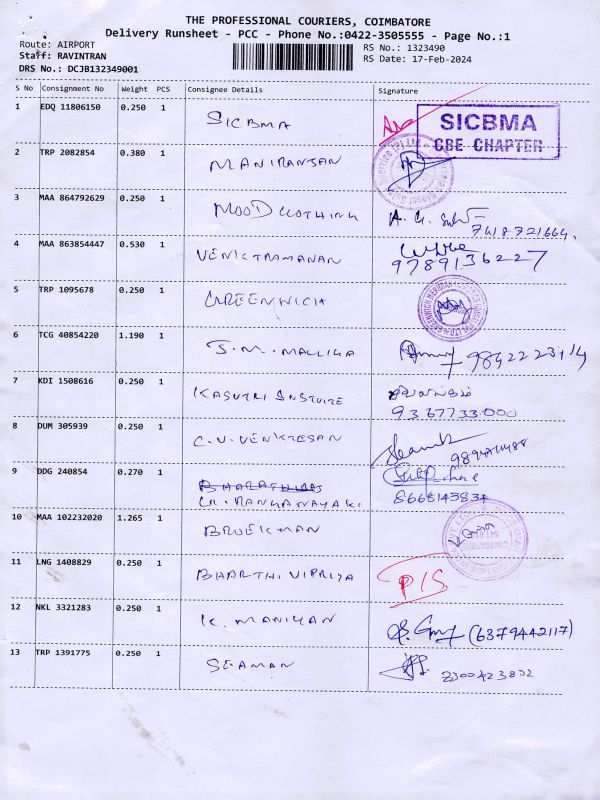 THE PROFESSIONAL COURIERS, COIMBATORE
Delivery Runsheet - PCC - Phone No.:0422-3505555 - Page No.:1
Route: AIRPORT
RS No.: 1323490
Staff: RAVINTRAN
RS Date: 17-Feb-2024
DRS No.: DCJB132349001
S No Consignment No Weight PCS Consignee Details Signature
1 EDQ 11806150 0.250 1 SICBMA SICBMA
CBE CHAPTER
2 TRP 2082854 0.380 1 MANIRANJAN
3 MAA 864792629 0.250 1 MOOD CLOTHING
7418721664.
4 MAA 863854447 0.530 1 VENKTRAMANAN
9789136227
5 TRP 1095678 0.250 1 GREENWICH
6 TCG 40854220 1.190 1 S.M. MALLIGA 9842223114
7 KDI 1508616 0.250 1 KASTURI INSTUITE
9367733000
8 DUM 305939 0.250 1 C.V. VENKTESAN
9 DDG 240854 0.270 1
LR. RANGANAYAKI 8668145834
10 MAA 102232020 1.265 1 BROEKMAN
11 LNG 1408829 0.250 1 BHARTHI VIPRIYA P/S
12 NKL 3321283 0.250 1 K. MANIYAN (6379442117)
13 TRP 1391775 0.250 1 SEAMAN 2300423802